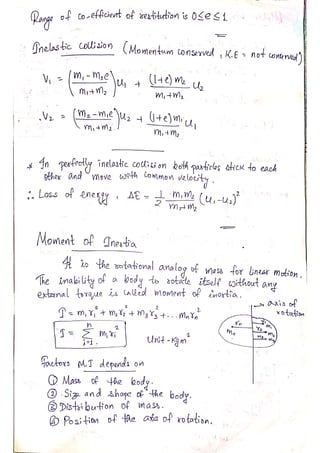 Range of co-efficient of restitution is 0≤e≤1
Inelastic Collision (Momentum conserved, K.E = not conserved)
V₁ = (m₁ - m₂e / m₁+m₂) u₁ + (1+e) m₂ / m₁+m₂ u₂
V₂ = (m₂ - m₁e / m₁+m₂) u₂ + (1+e) m₁ / m₁+m₂ u₁
* In perfectly inelastic collision both particles stick to each
other and move with common velocity.
∴ Loss of energy, ΔE = 1/2 m₁m₂ / m₁+m₂ (u₁-u₂)²
Moment of Inertia
It is the rotational analog of mass for linear motion.
The inability of a body to rotate itself without any
external torque is called moment of inertia.
axis of
rotation
I = m₁r₁² + m₂r₂² + m₃r₃² + ... mₙrₙ²
I = n Σ j=1 mᵢrᵢ²
Unit - kg m²
Factors M.I depends on
① Mass of the body.
② Size and shape of the body.
③ Distribution of mass.
④ Position of the axis of rotation.